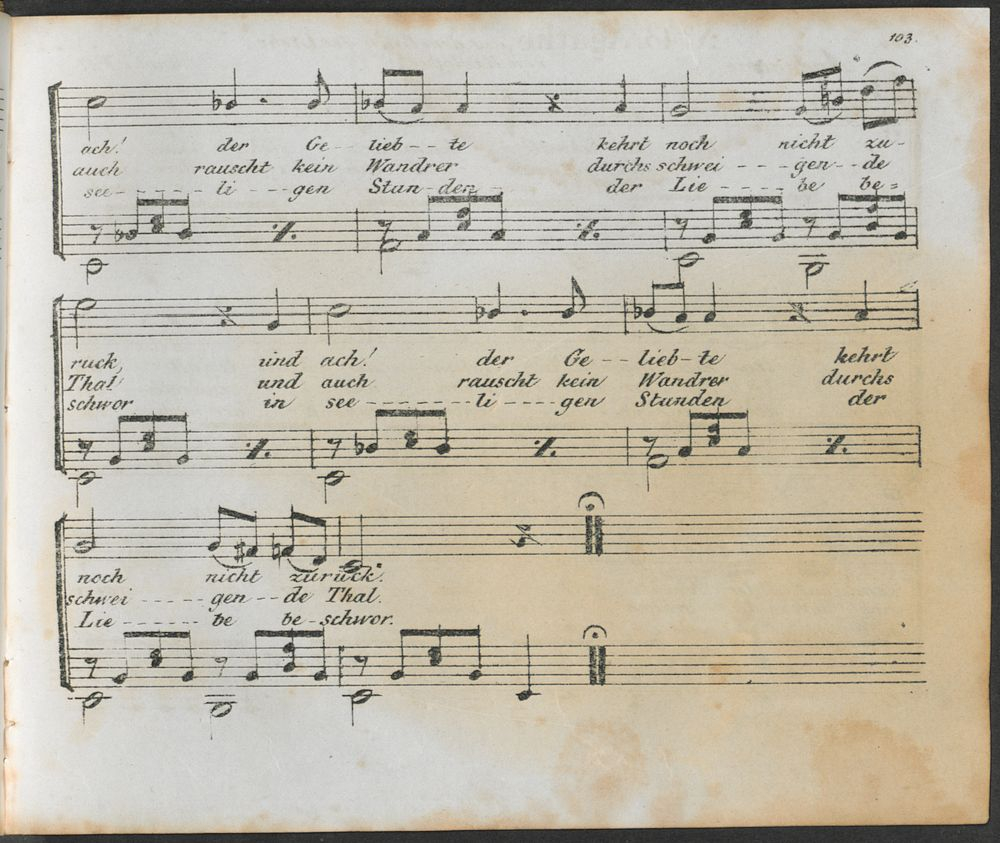 103.
ach! der Ge - lieb - te kehrt noch nicht zu -
auch rauscht kein Wandrer durchs schwei - gen - de
see - li - gen Stun - den der Lie - be be =
ruck, und ach! der Ge - lieb - te kehrt
Thal und auch rauscht kein Wandrer durchs
schwor in see - li - gen Stunden der
noch nicht zuruck.
schwei - gen - de Thal.
Lie - be be - schwor.